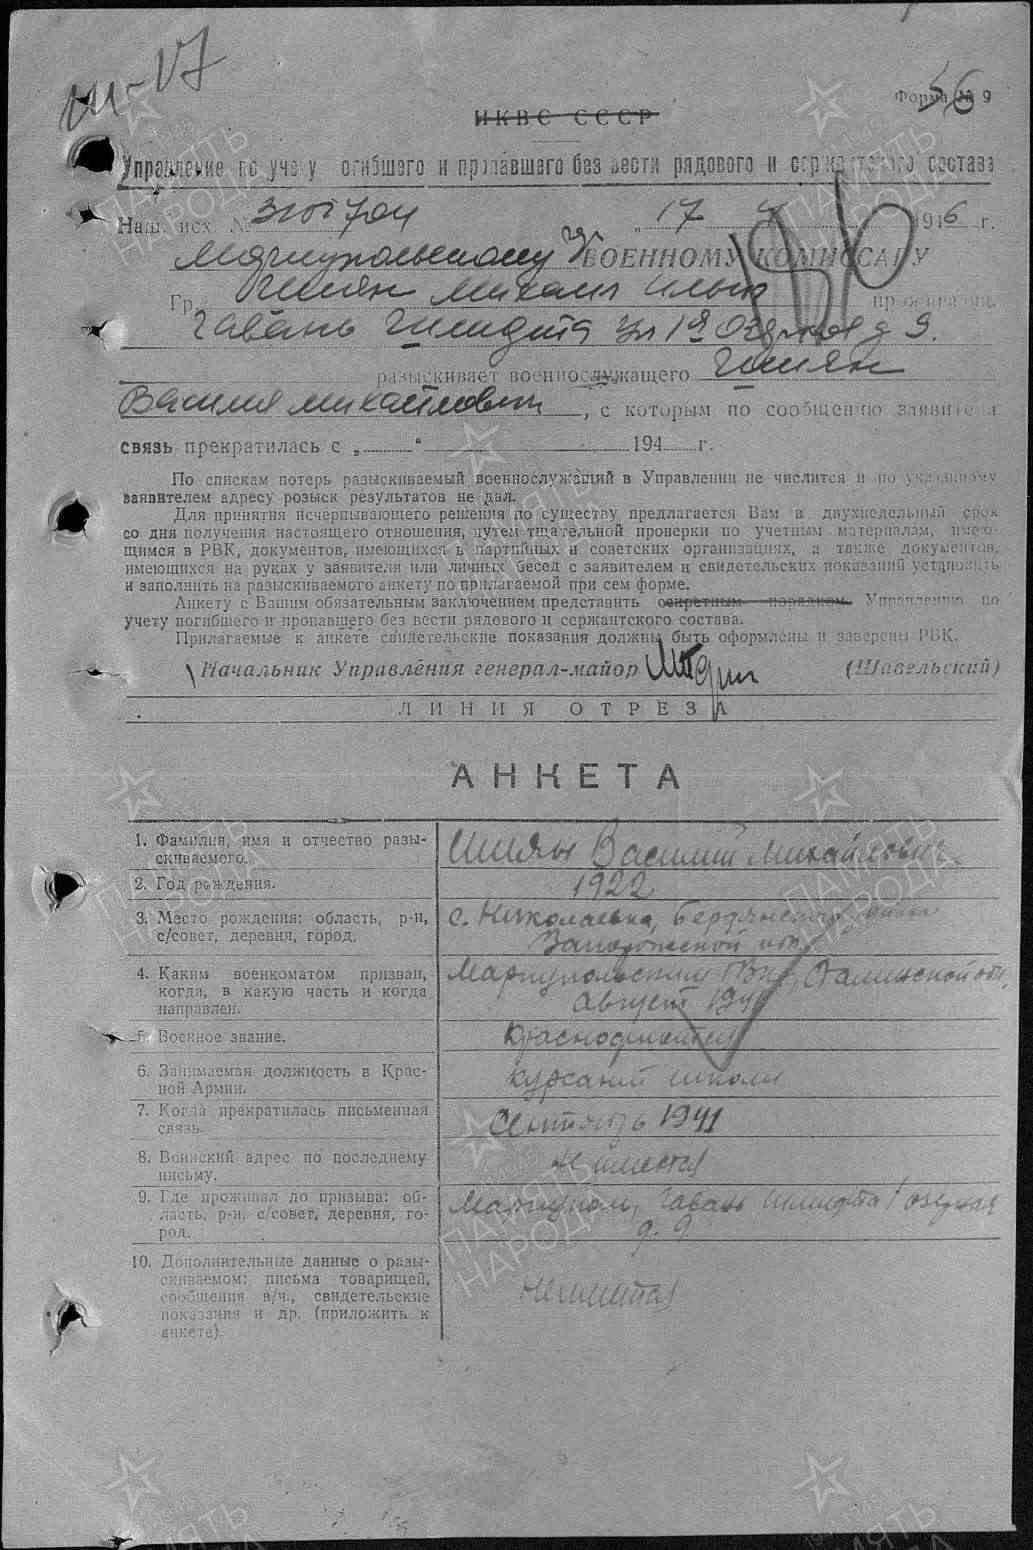 56
Форма № 9
НКВС СССР
Управление по учету погибшего и пропавшего без вести рядового и сержантского состава
Наш исх. №
„17 1946 г.
Мариупольскому ВОЕННОМУ КОМИССАРУ
Гр. Шиян Михаил Ильич проживающ.
Гавань Шмидта ул 1я Озерная д 9.
разыскивает военнослужащего Шиян
Василия Михайлович, с которым по сообщению заявителя
связь прекратилась с „ “ 194 г.
По спискам потерь разыскиваемый военнослужащий в Управлении не числится и по указанному
заявителем адресу розыск результатов не дал.
Для принятия исчерпывающего решения по существу предлагается Вам в двухнедельный срок
со дня получения настоящего отношения, путем тщательной проверки по учетным материалам, имею-
щимся в РВК, документов, имеющихся в партийных и советских организациях, а также документов,
имеющихся на руках у заявителя или личных бесед с заявителем и свидетельских показаний установить
и заполнить на разыскиваемого анкету по прилагаемой при сем форме.
Анкету с Вашим обязательным заключением представить секретным порядком Управлению по
учету погибшего и пропавшего без вести рядового и сержантского состава.
Прилагаемые к анкете свидетельские показания должны быть оформлены и заверены РВК.
Начальник Управления генерал-майор (Шавельский)
ЛИНИЯ ОТРЕЗА
АНКЕТА
1. Фамилия, имя и отчество разы-
скиваемого.
Шиян Василий Михайлович
2. Год рождения.
1922
3. Место рождения: область, р-н,
с/совет, деревня, город.
с. Николаевка, Бердянского района
Запорожской обл.
4. Каким военкоматом призван,
когда, в какую часть и когда
направлен.
Мариупольским ГВК, Сталинской обл,
Август 1941
5. Военное звание.
Краснофлотец
6. Занимаемая должность в Крас-
ной Армии.
курсант школы
7. Когда прекратилась письменная
связь.
Сентябрь 1941
8. Воинский адрес по последнему
письму.
Не имеется
9. Где проживал до призыва: об-
ласть, р-н, с/совет, деревня, го-
род.
Мариуполь, Гавань Шмидта 1 озерная
д. 9
10. Дополнительные данные о разы-
скиваемом: письма товарищей,
сообщения в/ч., свидетельские
показания и др. (приложить к
анкете)
Не имеется
ПАМЯТЬ
НАРОДА